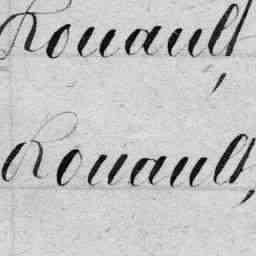 Rouault,
Rouault,